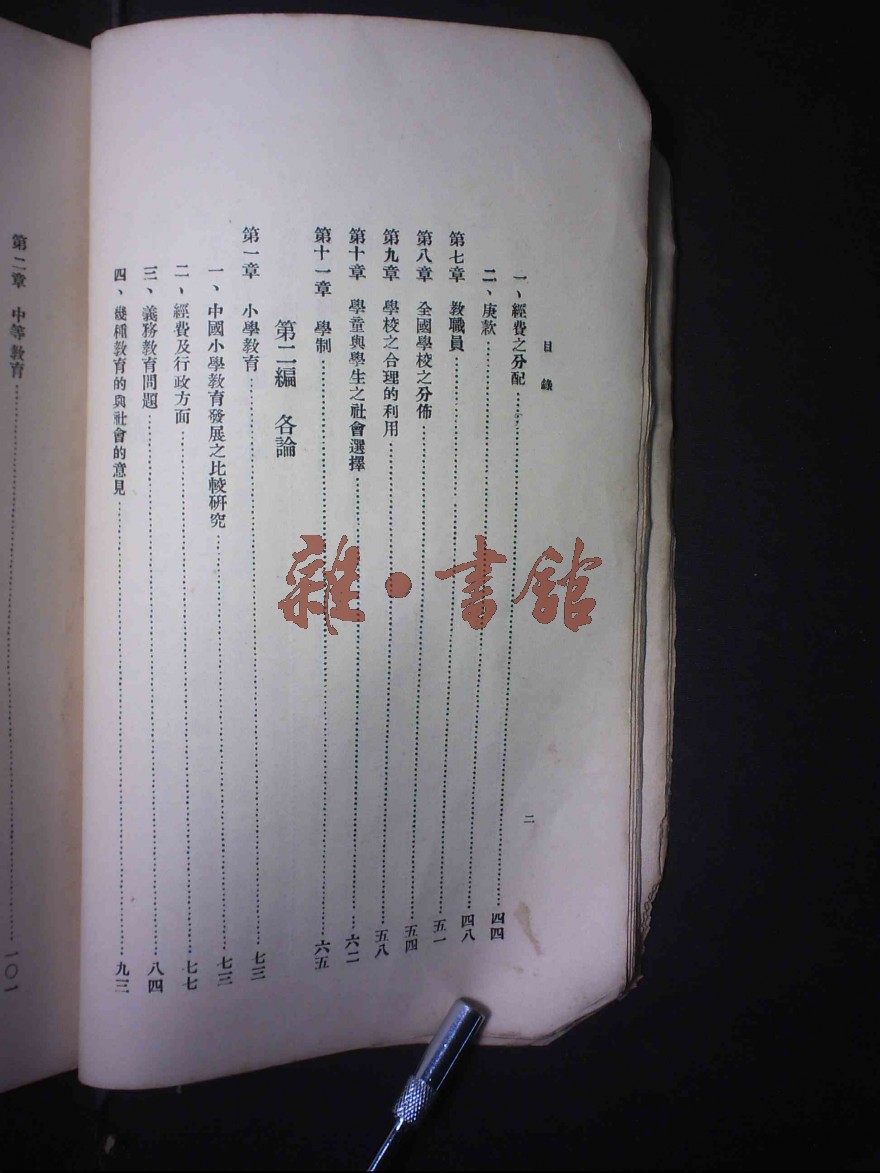 目錄
二
一、經費之分配 四四
二、庚款 四八
第七章 教職員 五一
第八章 全國學校之分佈 五四
第九章 學校之合理的利用 五八
第十章 學童與學生之社會選擇 六二
第十一章 學制 六五
第二編 各論
第一章 小學教育 七三
一、中國小學教育發展之比較研究 七三
二、經費及行政方面 七七
三、義務教育問題 八四
四、幾種教育的與社會的意見 九三
第二章 中等教育 一〇一
雜・書館